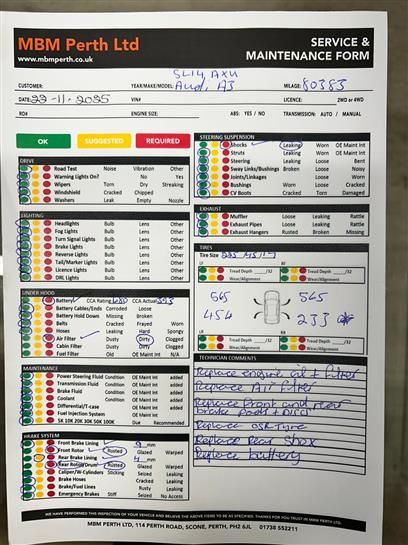 MBM Perth Ltd
www.mbmperth.co.uk
SERVICE &
MAINTENANCE FORM
SL14 AXU
CUSTOMER: YEAR/MAKE/MODEL: Audi, A3 MILAGE: 80383
DATE: 22-11-2025 VIN# LICENCE: 2WD or 4WD
RO# ENGINE SIZE: ABS: YES / NO TRANSMISSION: AUTO / MANUAL
OK SUGGESTED REQUIRED
DRIVE
Road Test Noise Vibration Other
Warning Lights On? No Yes
Wipers Torn Dry Streaking
Windshield Cracked Chipped
Washers Leak Empty Nozzle
LIGHTING
Headlights Bulb Lens Other
Fog Lights Bulb Lens Other
Turn Signal Lights Bulb Lens Other
Brake Lights Bulb Lens Other
Reverse Lights Bulb Lens Other
Tail/Marker Lights Bulb Lens Other
Licence Lights Bulb Lens Other
DRL Lights Bulb Lens Other
UNDER HOOD
Battery CCA Rating 680 CCA Actual 593
Battery Cables/Ends Corroded Loose
Battery Hold Down Missing Broken
Belts Cracked Frayed Worn
Hoses Leaking Hard Spongy
Air Filter Dusty Dirty Clogged
Cabin Filter Dusty Dirty Clogged
Fuel Filter Old OE Maint Int N/A
MAINTENANCE
Power Steering Fluid Condition OE Maint Int added
Transmission Fluid Condition OE Maint Int added
Brake Fluid Condition OE Maint Int added
Coolant Condition OE Maint Int added
Differential/T-case Condition OE Maint Int added
Fuel Injection System OE Maint Int
5K 10K 20K 30K 50K 100K Due Recommended
BRAKE SYSTEM
Front Brake Lining 9 mm
Front Rotor Rusted Glazed Warped
Rear Brake Lining 4 mm
Rear Rotor/Drum Rusted Glazed Warped
Caliper/W-Cylinders Sticking Seized Leaking
Brake Hoses Cracked Leaking
Brake/Fuel Lines Rusty Leaking
Emergency Brakes Stiff Seized No Access
STEERING SUSPENSION
Shocks Leaking Worn OE Maint Int
Struts Leaking Worn OE Maint Int
Steering Leaking Loose Bent
Sway Links/Bushings Broken Loose Noisy
Joints/Linkages Loose Worn
Bushings Worn Loose Cracked
CV Boots Cracked Torn Damaged
EXHAUST
Muffler Leaking Loose Rattle
Exhaust Pipes Leaking Loose Rattle
Exhaust Hangers Rusted Broken Missing
TIRES
Tire Size 225 45 17
LF RF
Tread Depth /32 Tread Depth /32
Wear/Alignment Wear/Alignment
565 565
454 233
LR RR
Tread Depth /32 Tread Depth /32
Wear/Alignment Wear/Alignment
TECHNICIAN COMMENTS
Replace engine oil + filter
Replace Air filter
Replace front and rear
brake pads + Disc
Replace OSR Tyre
Replace Rear Shox
Replace battery
WE HAVE PERFORMED THIS INSPECTION OF YOUR VEHICLE AND BELIEVE THE ABOVE ITEMS TO BE AS SPECIFIED. THANKS FOR YOU TRUST IN MBM PERTH LTD.
MBM PERTH LTD, 114 PERTH ROAD, SCONE, PERTH, PH2 6JL 01738 552211